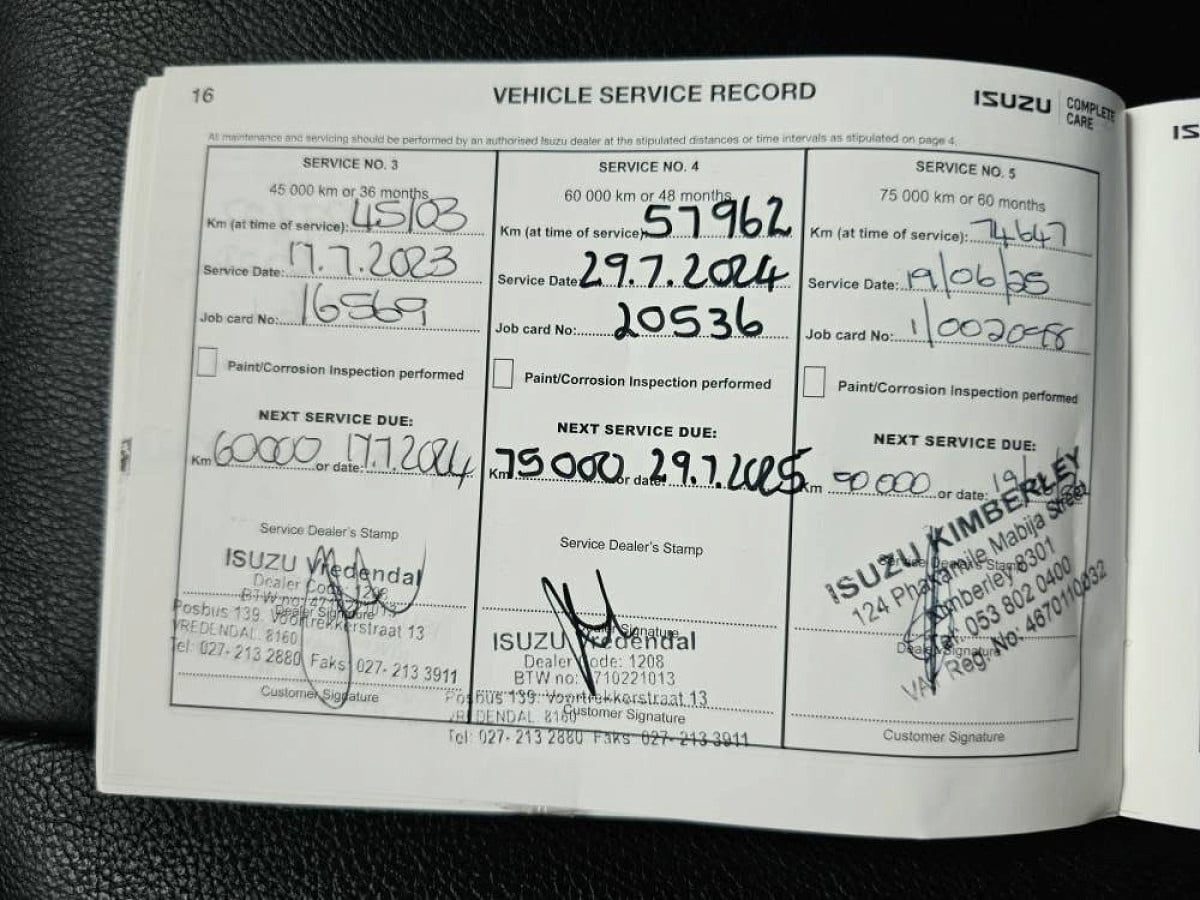 16
VEHICLE SERVICE RECORD
ISUZU COMPLETE CARE
IS
All maintenance and servicing should be performed by an authorised Isuzu dealer at the stipulated distances or time intervals as stipulated on page 4.
SERVICE NO. 3
45 000 km or 36 months
Km (at time of service): 45103
Service Date: 17.7.2023
Job card No: 16569
Paint/Corrosion Inspection performed
NEXT SERVICE DUE:
Km 60000 or date: 17.7.2024
Service Dealer's Stamp
ISUZU Vredendal
Dealer Code: 1208
BTW no:
Dealer Signature
Posbus 139. Voortrekkerstraat 13
VREDENDAL 8160
Tel: 027- 213 2880 Faks: 027- 213 3911
Customer Signature
SERVICE NO. 4
60 000 km or 48 months
Km (at time of service): 57962
Service Date: 29.7.2024
Job card No: 20536
Paint/Corrosion Inspection performed
NEXT SERVICE DUE:
Km 75000 or date: 29.7.2025
Service Dealer's Stamp
Signature
ISUZU Vredendal
Dealer Code: 1208
BTW no: 710221013
Posbus 139. Voortrekkerstraat 13
VREDENDAL 8160
Customer Signature
Tel: 027- 213 2880 Faks: 027- 213 3911
SERVICE NO. 5
75 000 km or 60 months
Km (at time of service): 74647
Service Date: 19/06/25
Job card No:
Paint/Corrosion Inspection performed
NEXT SERVICE DUE:
Km 90 000 or date: 19/
Service Dealer's Stamp
ISUZU KIMBERLEY
124 Phakamile Mabija Street
Kimberley 8301
Tel: 053 802 0400
VAT Reg. No: 4670110032
Dealer Signature
Customer Signature